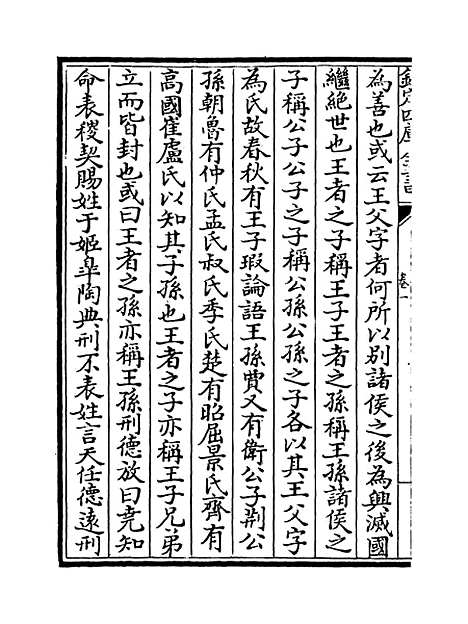 欽定四庫全書
卷一
為善也或云王父字者何所以別諸侯之後為興滅國
繼絶世也王者之子稱王子王者之孫稱王孫諸侯之
子稱公子公子之子稱公孫公孫之子各以其王父字
為氏故春秋有王子瑕論語王孫賈又有衛公子荆公
孫朝魯有仲氏孟氏叔氏季氏楚有昭屈景氏齊有
高國崔盧氏以知其子孫也王者之子亦稱王子兄弟
立而皆封也或曰王者之孫亦稱王孫刑德放曰堯知
命表稷契賜姓于姬臯陶典刑不表姓言天任德逺刑